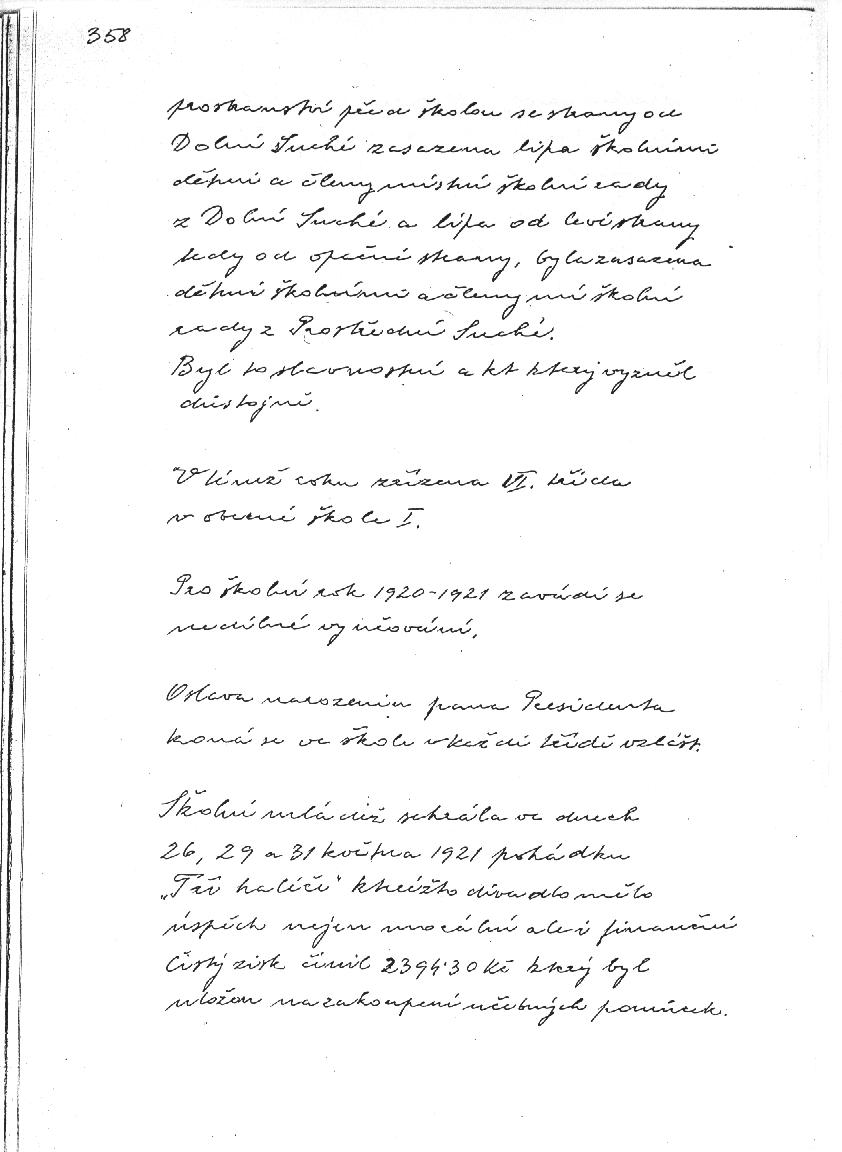 358
prostranství před školou se strany od
Dolní Suché zasazena lípa školními
dětmi a členy místní školní rady
z Dolní Suché a lípa od levé strany
tedy od opačné strany, byla zasazena
dětmi školními a členy mís školní
rady z Prostřední Suché.
Byl to slavnostní akt který vyzněl
důstojně.
V témž roku zřízena VI. třída
v obecné škole I.
Pro školní rok 1920-1921 zavádí se
nedílné vyučování.
Oslava narozenin pana Presidenta
koná se ve škole v každé třídě vzlášt.
Školní mládež sehrála ve dnech
26, 29 a 31 května 1921 pohádku
„Tři haléře" kteréžto divadlo mělo
úspěch nejen morální ale i finanční
Čistý zisk činil 2394·30 Kč který byl
uložen na zakoupení učebných pomůcek.